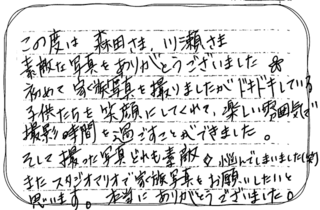 この度は 森田さま、川瀬さま
素敵な写真をありがとうございました
初めて家族写真を撮りましたがドキドキしている
子供たちを笑顔にしてくれて、楽しい雰囲気で
撮影の時間を過ごすことができました。
そして撮った写真どれも素敵 悩んでしまいました(笑)
またスタジオマリオで家族写真をお願いしたいと
思います。本当にありがとうございました。